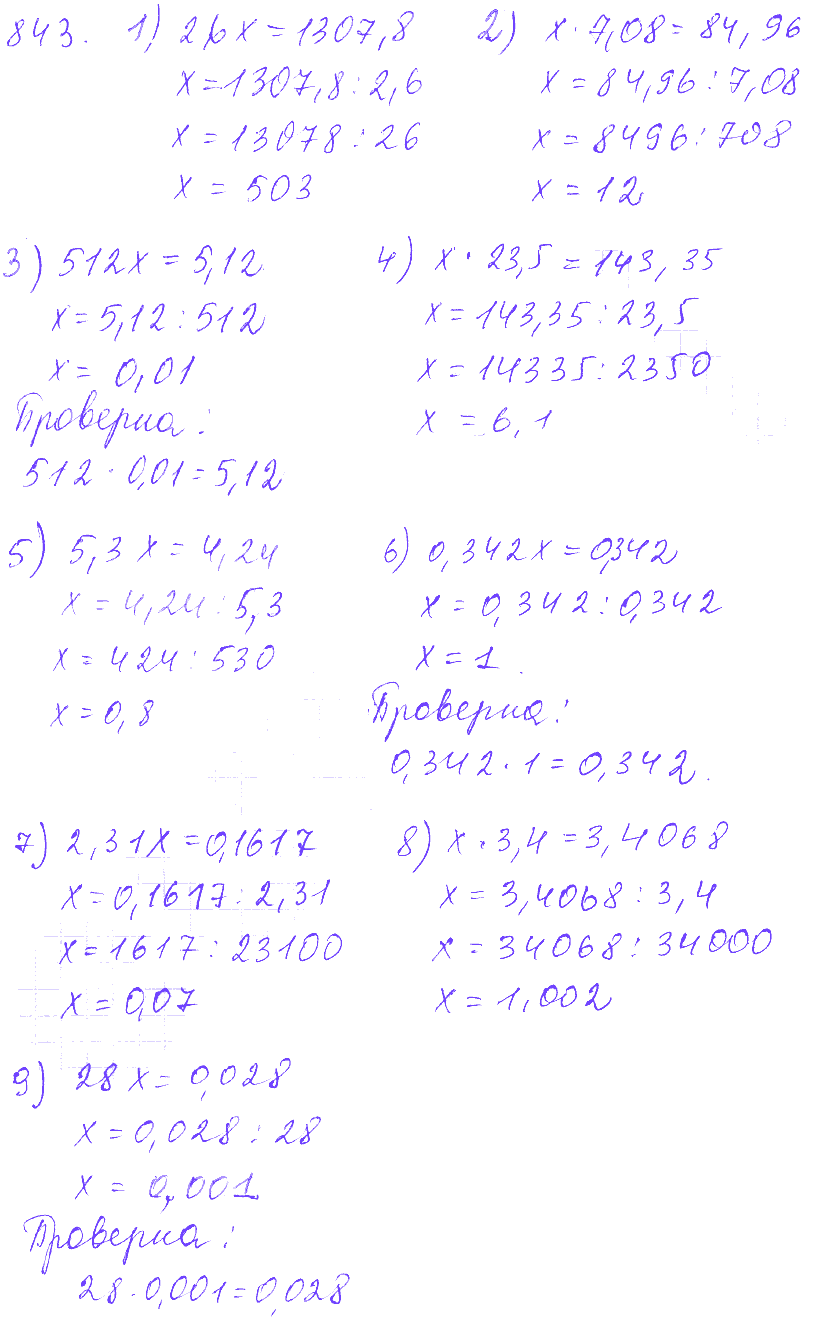 843. 1) 2,6x = 1307,8
x = 1307,8 : 2,6
x = 13078 : 26
x = 503
2) x · 7,08 = 84,96
x = 84,96 : 7,08
x = 8496 : 708
x = 12
3) 512x = 5,12
x = 5,12 : 512
x = 0,01
Проверка:
512 · 0,01 = 5,12
4) x · 23,5 = 143,35
x = 143,35 : 23,5
x = 14335 : 2350
x = 6,1
5) 5,3x = 4,24
x = 4,24 : 5,3
x = 424 : 530
x = 0,8
6) 0,342x = 0,342
x = 0,342 : 0,342
x = 1
Проверка:
0,342 · 1 = 0,342.
7) 2,31x = 0,1617
x = 0,1617 : 2,31
x = 1617 : 23100
x = 0,07
8) x · 3,4 = 3,4068
x = 3,4068 : 3,4
x = 34068 : 34000
x = 1,002
9) 28x = 0,028
x = 0,028 : 28
x = 0,001
Проверка:
28 · 0,001 = 0,028